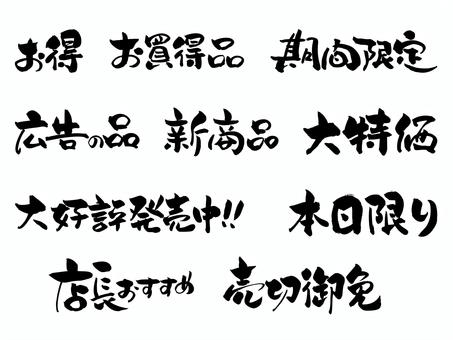 お得 お買得品 期間限定
広告の品 新商品 大特価
大好評発売中!! 本日限り
店長おすすめ 売切御免